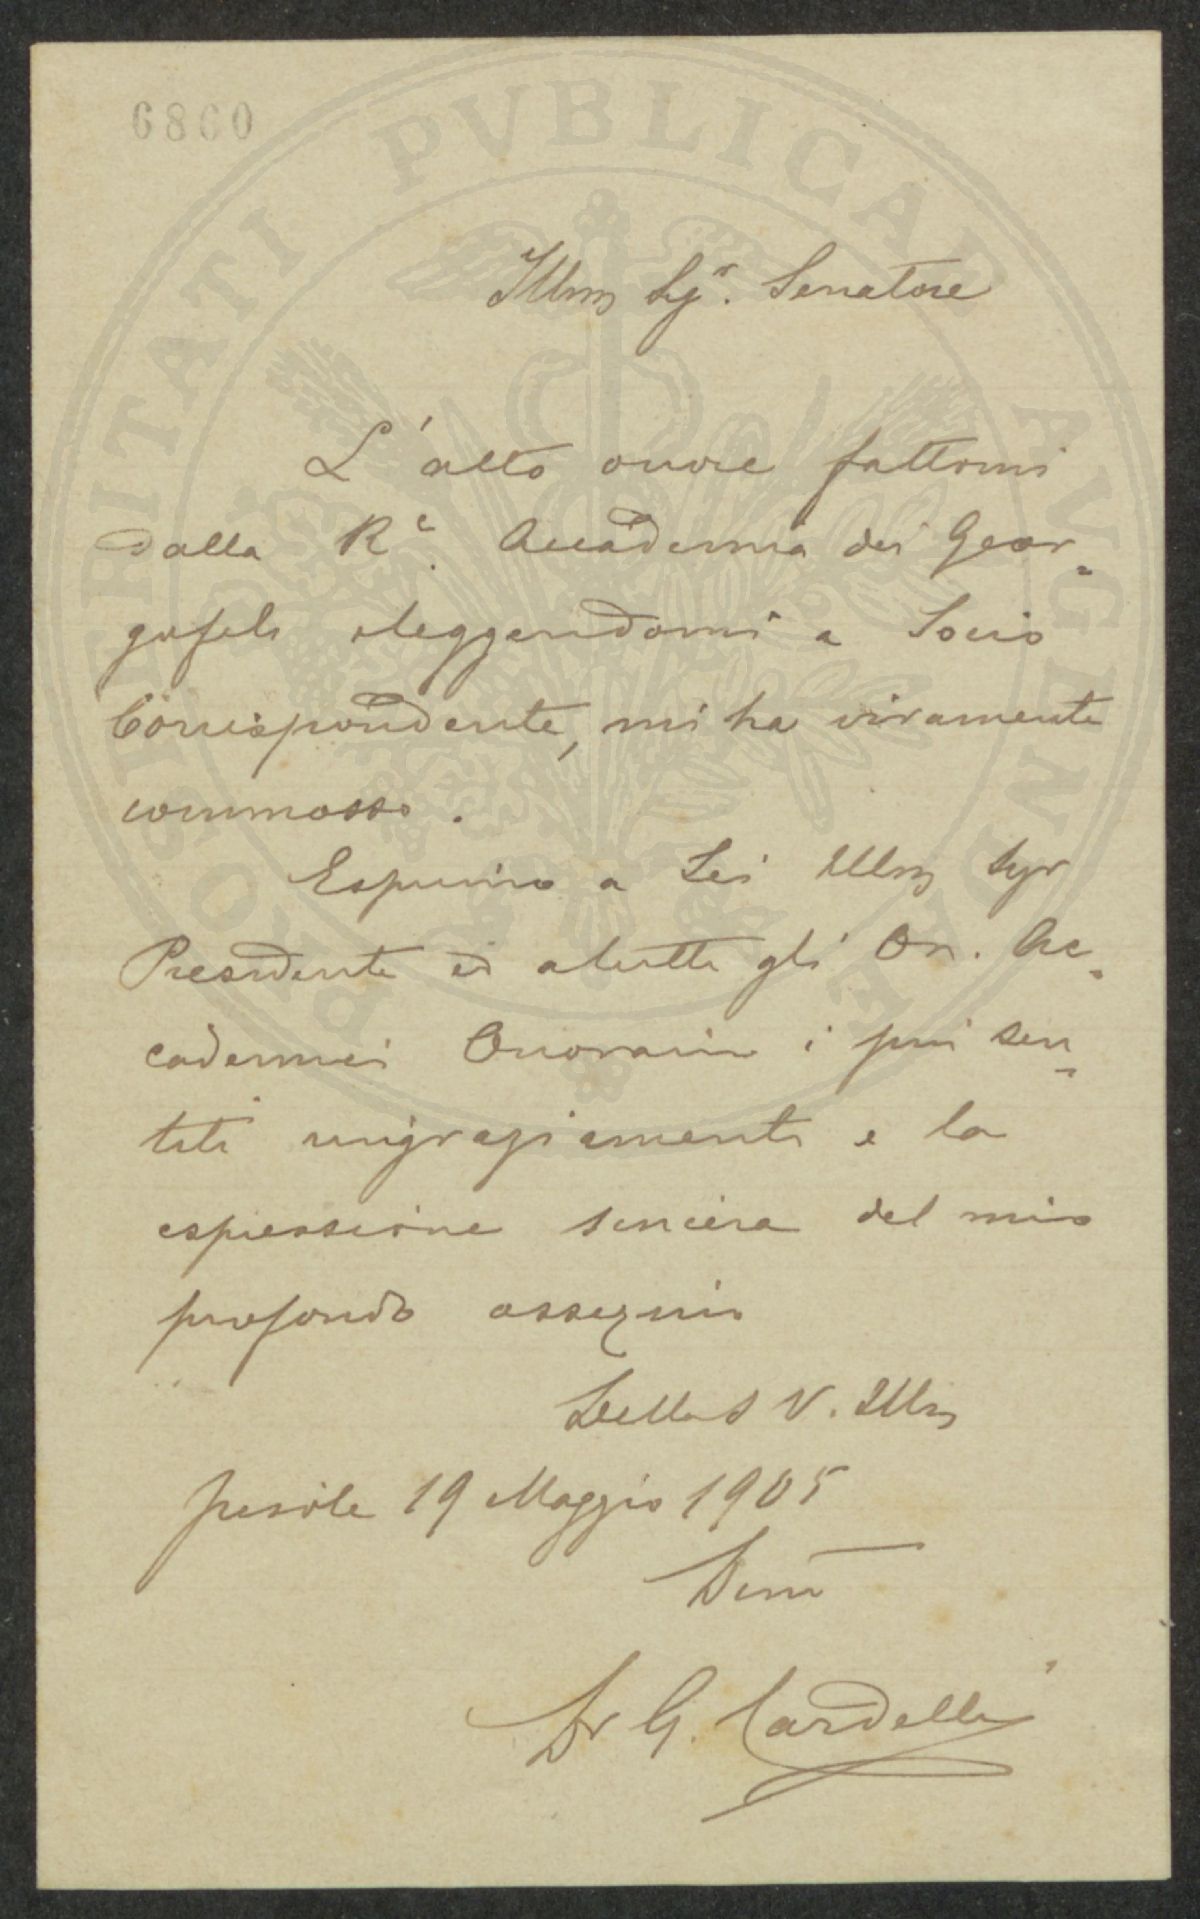 6860
PROSPERITATI PVBLICAE AVGENDAE
Illmo Sgr. Senatore
L'alto onore fattomi
dalla Re. Accademia dei Geor-
gofili eleggendomi a Socio
Corrispondente, mi ha vivamente
commosso.
Esprimo a Lei Illmo Sgr
Presidente ed a tutti gli On. Ac-
cademici Onorari i più sen-
titi ringraziamenti e la
espressione sincera del mio
profondo ossequio
Della S V. Illma
Fiesole 19 Maggio 1905
Dr G. Cardelli